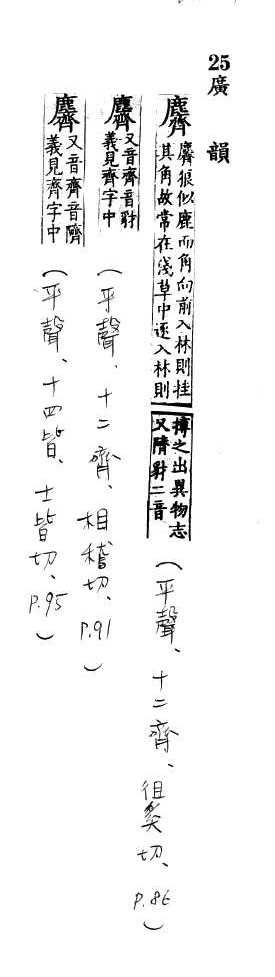 25廣韻
麡
麡狼似鹿而角向前入林則挂
其角故常在淺草中逐入林則
搏之出異物志
又隮豺二音
（平聲、十二齊、徂奚切、P.86）
麡
又音齊音豺
義見齊字中
（平聲、十二齊、相稽切、P.91）
麡
又音齊音隮
義見齊字中
（平聲、十四皆、士皆切、P.95）